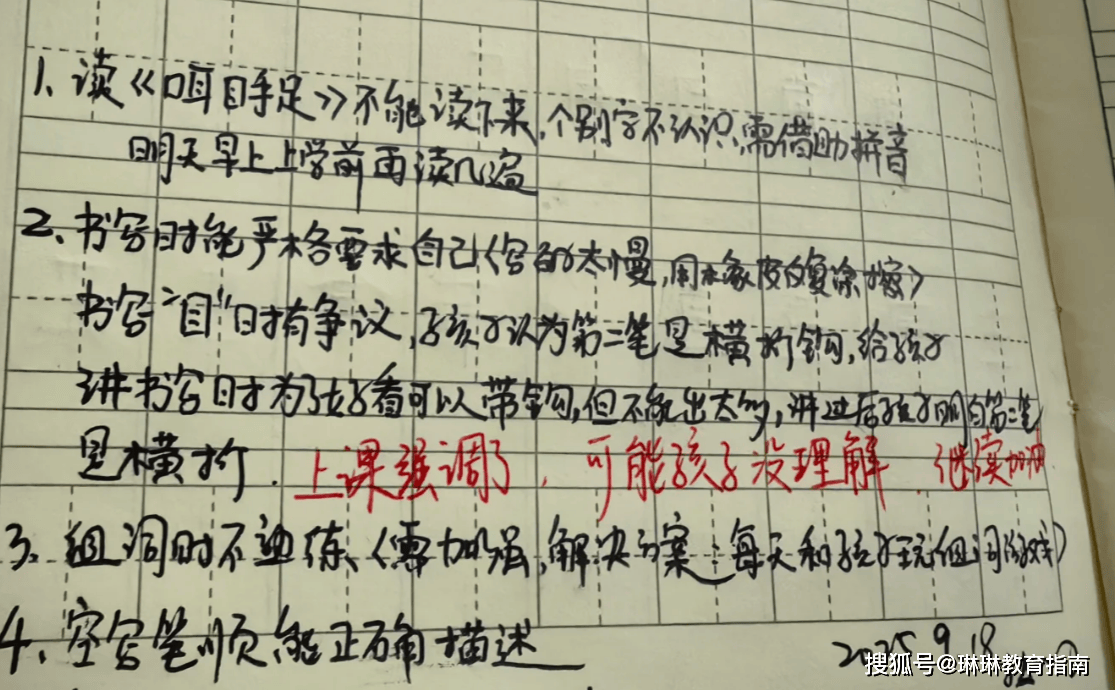 1、读《口耳目手足》不能读下来,个别字不认识,需借助拼音
明天早上上学前再读几遍
2、书写时能严格要求自己(写的太慢,用橡皮反复涂擦)
书写“目”时有争议,孩子认为第二笔是横折钩,给孩子
讲书写时为了好看可以带钩,但不能出太多,讲过后孩子明白第二笔
是横折. 上课强调了,可能孩子没理解,继续加油
3、组词时不熟练、(需加强,解决方案:每天和孩子玩组词游戏)
4、空写笔顺能正确描述
2025.9.18
搜狐号@琳琳教育指南